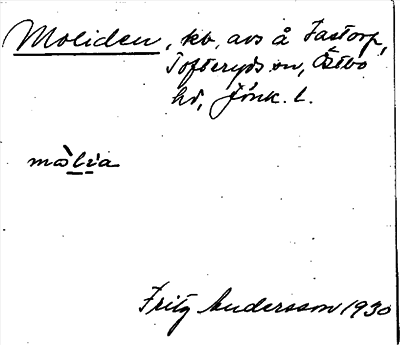 Moliden, kb, avs å Fastorp,
Tofteryds sn, Östbo
hd, Jönk. l.
mòlia
Fritz Andersson 1930